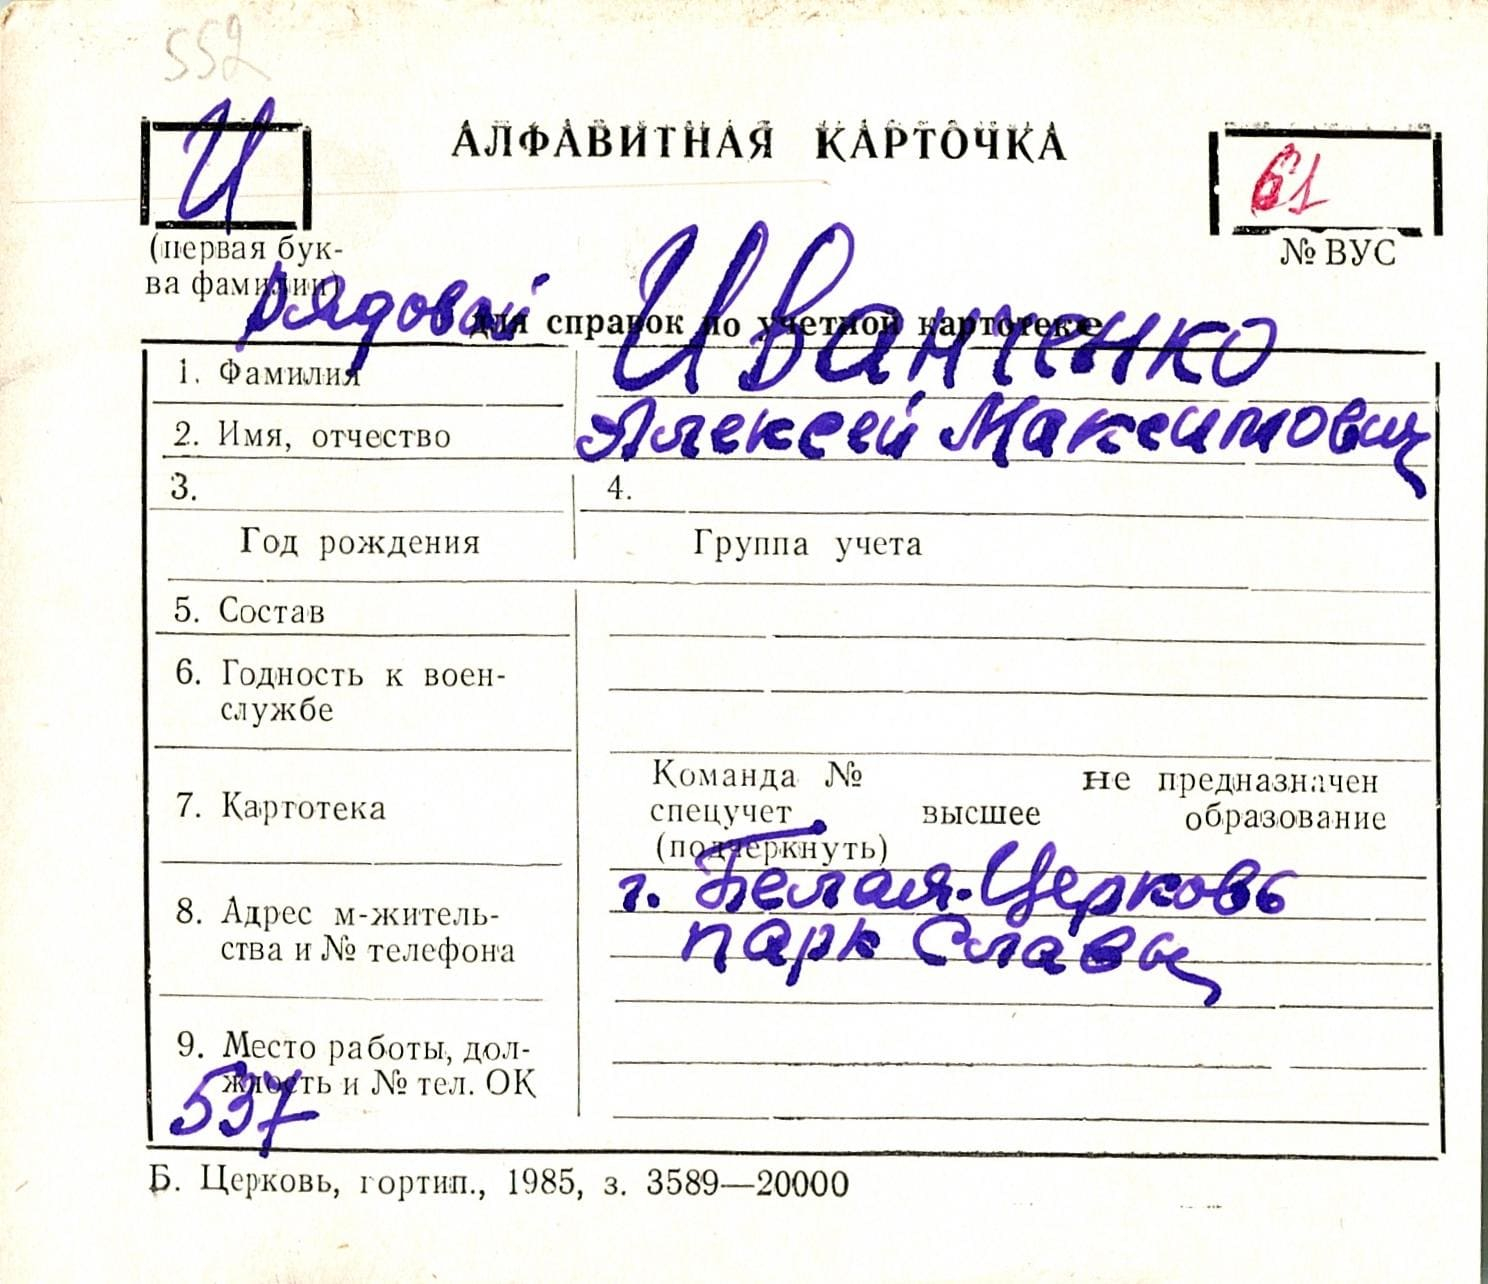 552
И
АЛФАВИТНАЯ КАРТОЧКА
61
(первая бук-
ва фамилии)
№ ВУС
рядовой
для справок по учетной картотеке
1. Фамилия Иванченко
2. Имя, отчество Алексей Максимович
3. 4.
Год рождения Группа учета
5. Состав
6. Годность к воен-
службе
7. Картотека
Команда № не предназначен
спецучет высшее образование
(подчеркнуть)
8. Адрес м-житель-
ства и № телефона
г. Белая-Церковь
парк Славы
9. Место работы, дол-
жность и № тел. ОК
537
Б. Церковь, гортип., 1985, з. 3589—20000